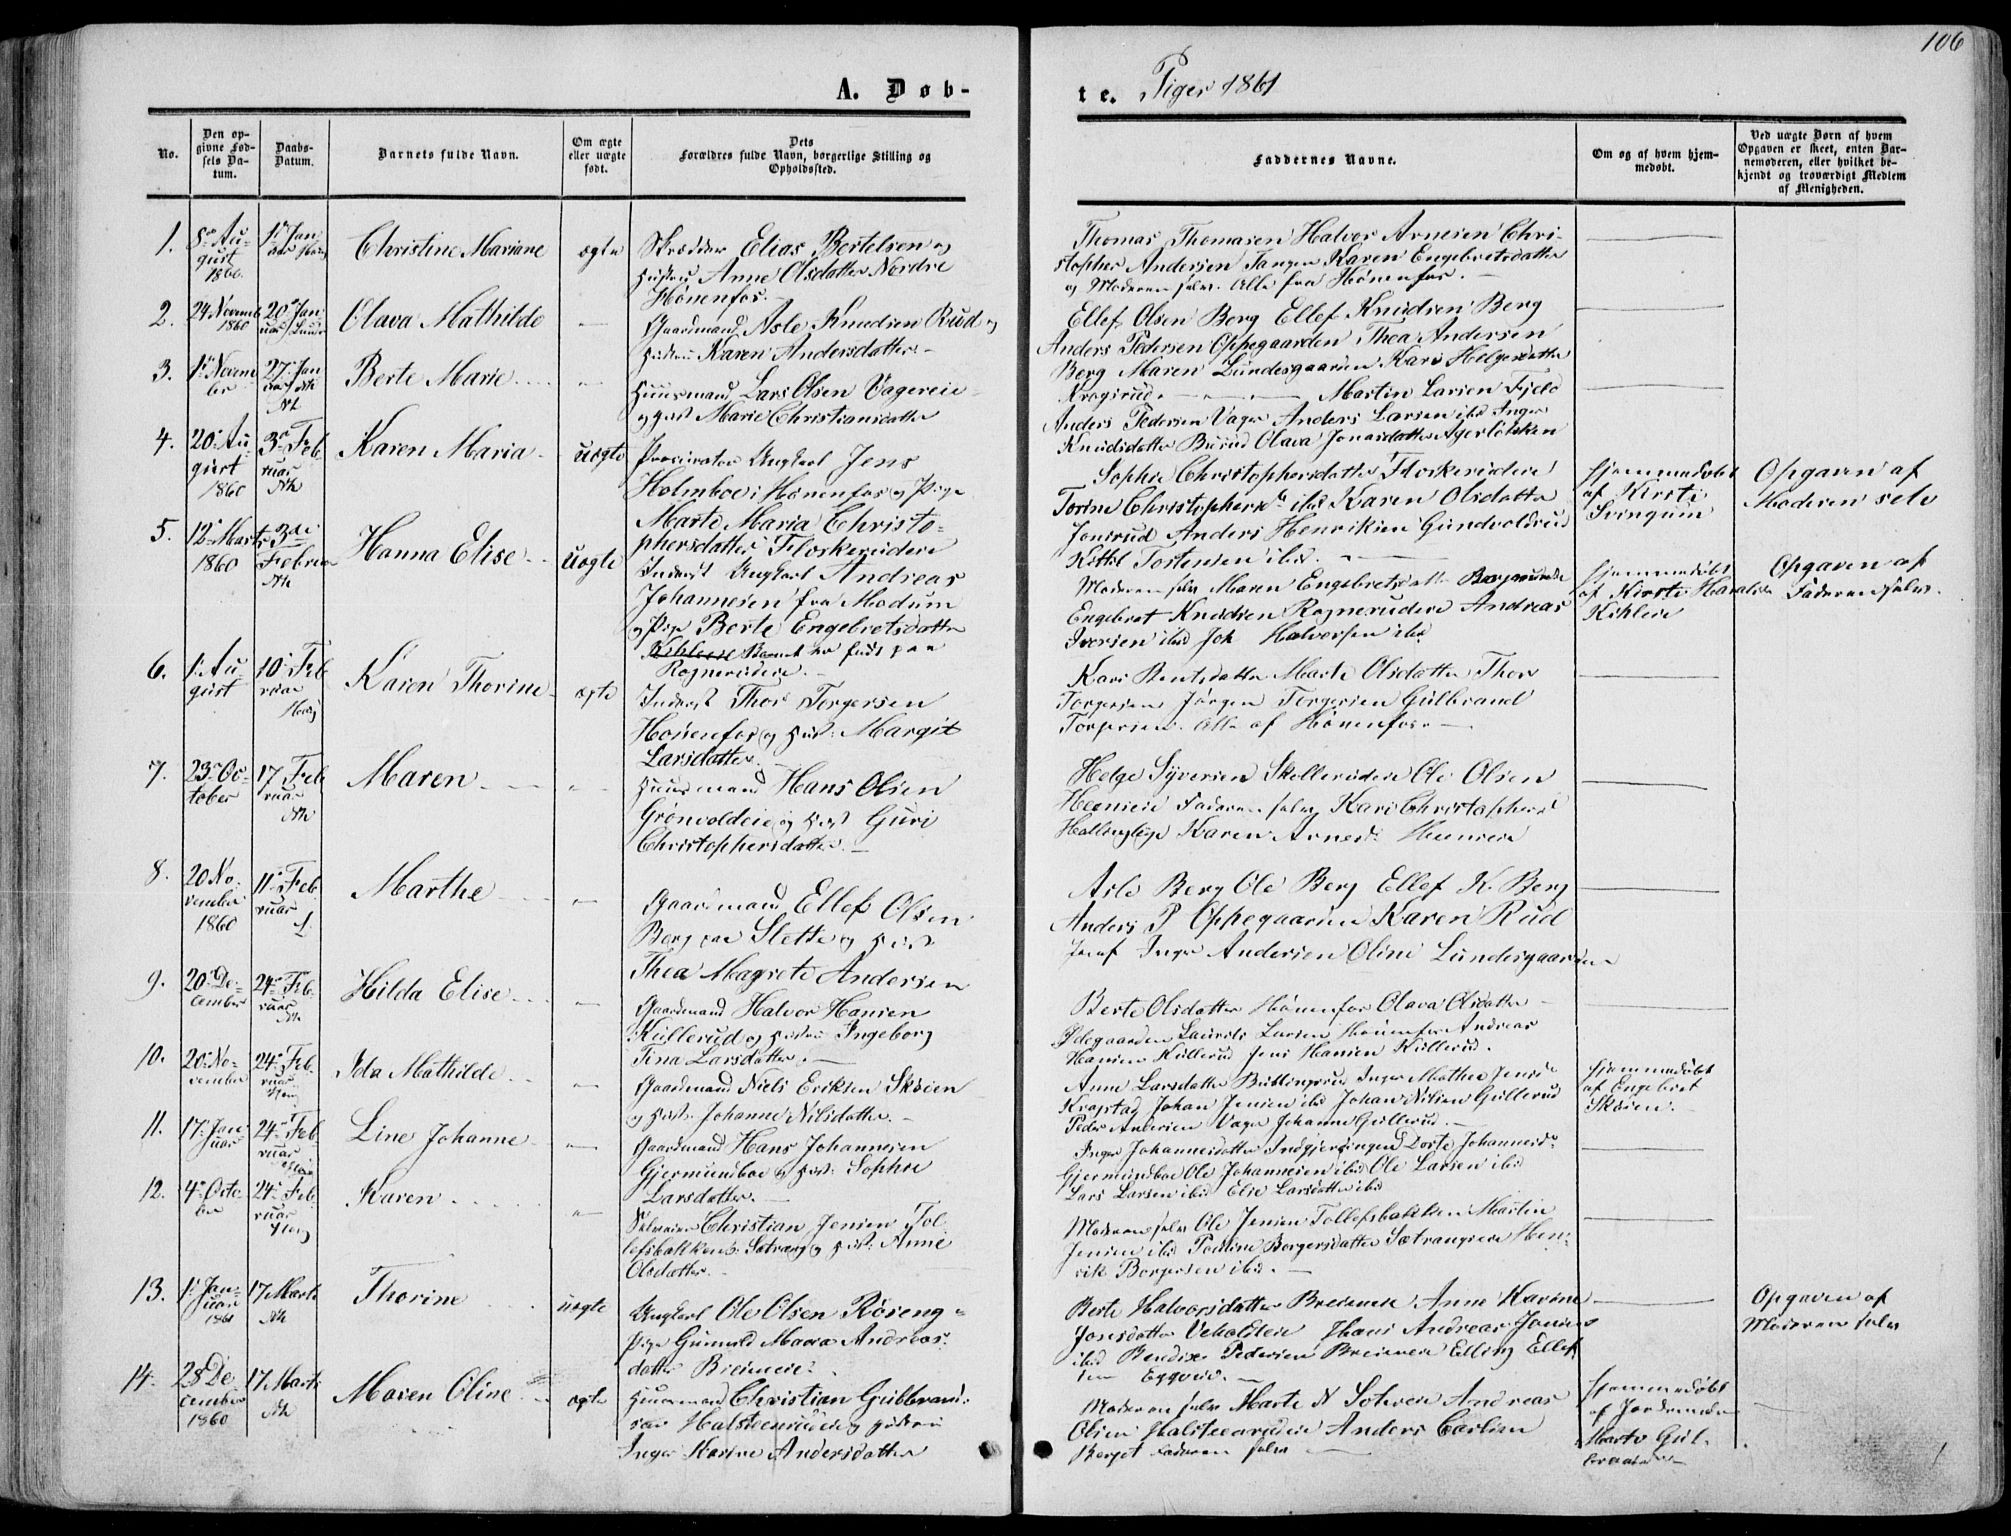 106
A. Døb-
te. Piger 1861
No.
Den op-
givne Fød-
sels Da-
tum.
Daabs-
Datum.
Barnets fulde Navn.
Om ægte
eller uægte
født.
Dets
Forældres fulde Navn, borgerlige Stilling og
Opholdssted.
Faddernes Navne.
Om og af hvem hjem-
medøbt.
Ved uægte Børn af hvem
Opgaven er skeet, enten Bar-
nemoderen, eller hvilket be-
kjendt og troværdigt Medlem
af Menigheden.
1.
8. Au-
gust
1860
1 Jan
Christine Mariane
ægte
Skrædder Elias Bertelsen og
Hustru Anne Olsdatter Nordre
Hönenfos.
Thomas Thomasen Halvor Arnesen Chri-
stopher Andersen Tangen Karen Engebretsdatter
og Moderen selv. Alle fra Hönenfos.
2.
24 Novemb
1860
20 Jan
uar
Olava Mathilde
Gaardmand Asle Knudsen Rud og
Hustru Karen Andersdatter
Ellef Olsen Berg Ellef Knudsen Berg
Anders Pedersen Oppegaarden Thea Andersen
Berg Maren Lundesgaarden Kari Helgesdatter
Kragsrud.
3.
1 Novem
ber
27 Jan
uar
Nh
Berte Marie
Huusmand Lars Olsen Vagereie
og Hust Marie Christiansdatter
Martin Larsen Fjeld
Anders Pedersen Vager Anders Larsen ibid Inger
Knudsdatter Burud Olava Jonasdatter
4.
20 Au-
gust
1860
3 Feb
ruar
Nh
Karen Maria
uægte
Procurator Ungkarl Jens
Holmboe i Hönenfos og Pige
Marte Maria Christo-
phersdatter Floskerudeie
Sophie Christophersdatter Floskerudeie
Torine Christophersd ibid Karen Olsdatter
Jonsrud Anders Henriksen Gundvoldsrud
Kittil Torstensen ibid.
Hjemmedøbt
af Kirsti
Svingum
Opgaven af
Moderen selv
5.
12 Marts
1860
3de
Februar
Nh
Hanna Elise
uægte
Inderst Ungkarl Andreas
Johannesen fra Modum
og Pige Berte Engebretsdatter
Barnet er født paa
Rognerudeie.
Moderen selv Maren Engebretsdatter
Engebret Knudsen Rognerudeie Andreas
Iversen ibid Joh Halvorsen ibid
Hjemmedøbt
af Kirsti
Kihleie
Opgaven af
Faderen selv.
6.
1 Au-
gust
10 Feb
ruar
Karen Thorine
ægte
Inderst Thor Torgersen
Hönenfos og Hust: Margit
Larsdatter.
Kari Berntsdatter Marte Olsdatter Thor
Torgersen Jörgen Torgersen Gulbrand
Torgersen. Alle af Hönenfos.
7.
23 Oc-
tober
17 Feb
ruar
Nh
Maren
Huusmand Hans Olsen
Grönvoldeie og Hust Guri
Christophersdatter.
Helge Syversen Skollerudeie Ole Olsen
Heeneie Faderen selv Kari Christophersd
Karen Arnesd Heeneie
8.
20 No-
vember
1860
11 Feb
ruar
Marthe
Gaardmand Ellef Olsen
Berg paa Slette og Hust
Thea Magrete Andersen
Asle Berg Ole Berg Ellef K. Berg
Anders P Oppegaarden Karen Rud
Inger Andersen Oline Lundesgaarden
9.
20 De-
cember
24 Feb-
ruar
Nh
Hilda Elise
Gaardmand Halvor Hansen
Kullerud og Hustru Ingeborg
Tina Larsdatter.
Berte Olsdatter Hönenfos Olava Olsdatter
Ødegaarden Laurits Larsen Hönenfos Andreas
Hansen Kullerud Jens Hansen Kullerud.
10.
20 No-
vember
24 Feb.
ruar
Ida Mathilde
Gaardmand Niels Eriksen Skøien
og Hust: Johanne Nilsdatter.
Anne Larsdatter Inger Mathea Jensd
Kragstad Johan Jensen ibid Johan Nilsen Gullerud
Peder Andersen Vager Johanne Gullerud.
Hjemmedøbt
af Engebret
Skøien.
11.
17 Jan
uar
24 Feb
ruar
Line Johanne
Gaardmand Hans Johannesen
Gjermundboe og Hust: Sophie
Larsdatter.
Inger Johannesdatter Dorte Johannesd
Gjermundboe Ole Johannesen ibid Ole Larsen ibid
Lars Larsen ibid Else Larsdatter ibid
12.
4 Octo-
ber
24 Feb.
ruar
Karen
Selveier Christian Jensen Tol
lefsbakken Sætrang og Hust: Anne
Olsdatter.
Moderen selv Ole Jensen Tollefsbakken Martin
Jensen ibid Pauline Borgersdatter Sætrangeie Hen-
rik Borgersen ibid.
13.
1 Jan-
uar
1861
17 Marts
Nh
Thorine
uægte
Ungkarl Ole Olsen Røseng
Pige Gunhild Maria Andreas-
datter Breieneie.
Berte Halvorsdatter Breieneie Anne Karine
Jonsdatter Veholdteie Hans Andreas Jonsen
ibid Bendix Pedersen Breieneie Elling Ellef
sen Eggeeie.
Opgaven af
Moderen selv
14.
28 De-
cember
1860
17 Marts
Nh
Maren Oline
ægte
Huusmand Christian Gulbrand-
sen Halsteenrudeie og Hustru
Inger Karine Andersdatter
Moderen selv Marte N Andreas
Olsen Halsteenrudeie Anders Carlsen
Berget Faderen selv
Hjemmedøbt
af Jordemoder
Marte Gul-